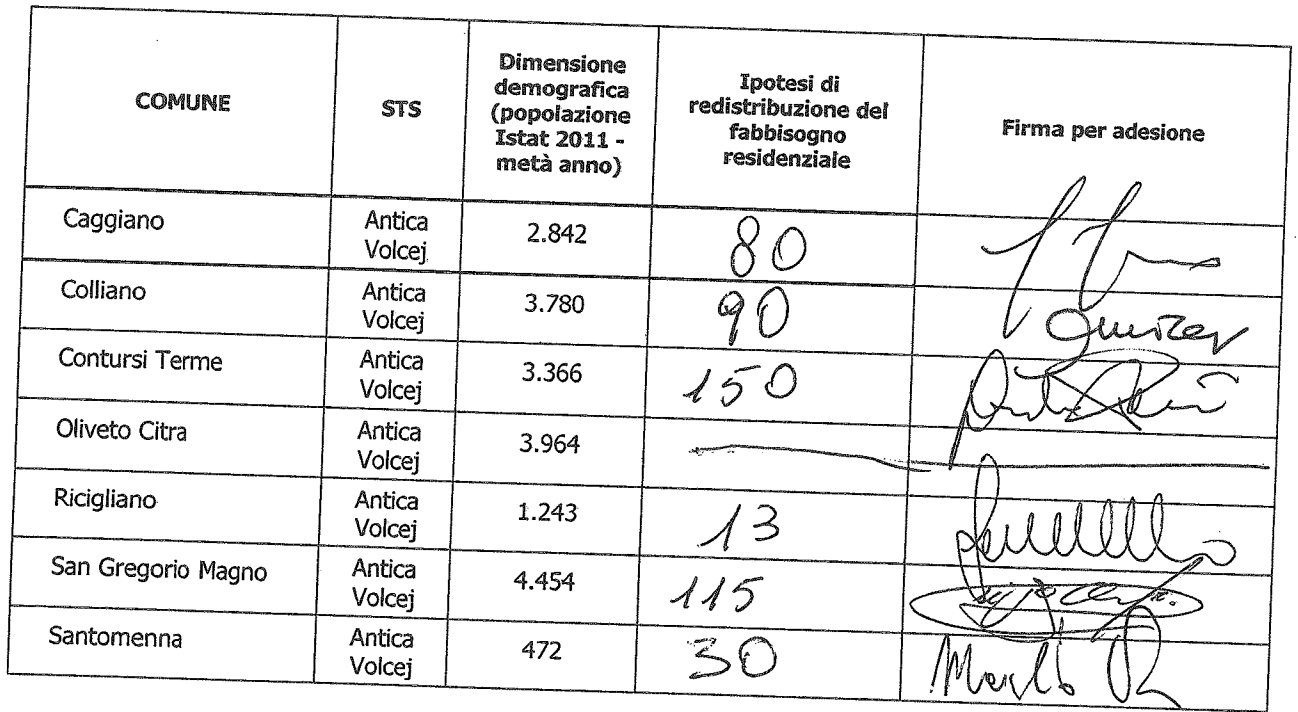 COMUNE
STS
Dimensione
demografica
(popolazione
Istat 2011 -
metà anno)
Ipotesi di
redistribuzione del
fabbisogno
residenziale
Firma per adesione
Caggiano
Antica
Volcej
2.842
80
Colliano
Antica
Volcej
3.780
90
Contursi Terme
Antica
Volcej
3.366
150
Oliveto Citra
Antica
Volcej
3.964
Ricigliano
Antica
Volcej
1.243
13
San Gregorio Magno
Antica
Volcej
4.454
115
Santomenna
Antica
Volcej
472
30